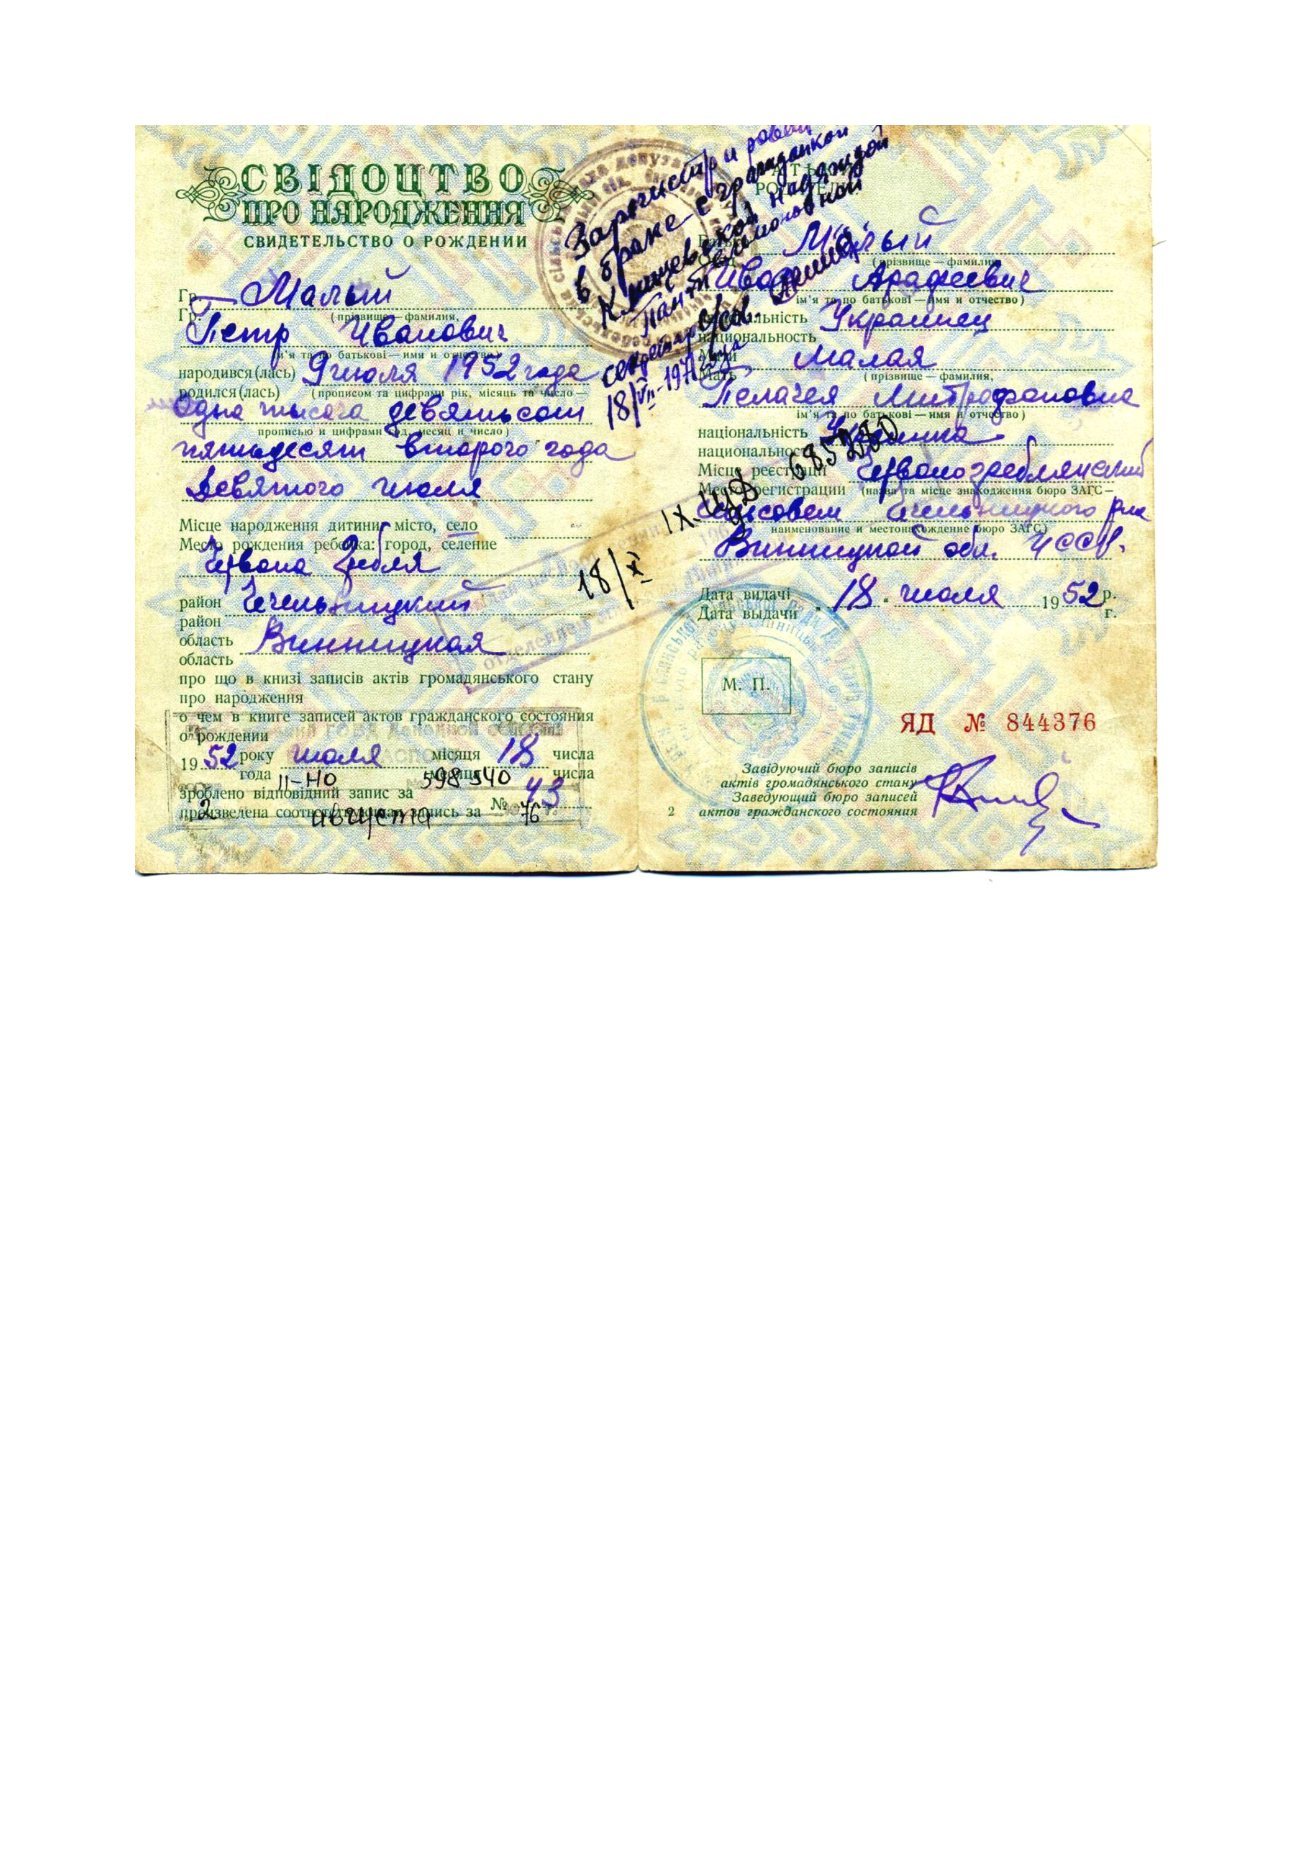 СВІДОЦТВО
ПРО НАРОДЖЕННЯ
СВИДЕТЕЛЬСТВО О РОЖДЕНИИ
Гр. Малый
Гр. (прізвище — фамилия,
Петр Иванович
ім'я та по батькові — имя и отчество)
народився(лась) 9 июля 1952 года
родился(лась) (прописом та цифрами рік, місяць та число —
Одна тысяча девятьсот
прописью и цифрами год, месяц и число)
пятьдесят второго года
девятого июля
Місце народження дитини: місто, село
Место рождения ребенка: город, селение
Червона Гребля
район Чечельницкий
район
область Винницкая
область
про що в книзі записів актів громадянського стану
про народження
о чем в книге записей актов гражданского состояния
о рождении
1952 року июля місяця 18 числа
года месяца числа
II-НО 598540
зроблено відповідний запис за № 43
произведена соответствующая запись за
2 августа 76
Зарегистрирован
в браке с гражданкой
Надеждой
Пантелеймоновной
секретарь
18/VII-1971 года
18/X IX ЦД 685
Малый
(прізвище — фамилия,
Иван Арафеевич
ім'я та по батькові — имя и отчество)
національність Украинец
национальность
Мати Малая
Мать (прізвище — фамилия,
Пелагея Митрофановна
ім'я та по батькові — имя и отчество)
національність Украинка
национальность
Місце реєстрації Червоногреблянский
Место регистрации (назва та місце знаходження бюро ЗАГС —
сельсовет Чечельницкого р-на
наименование и местонахождение бюро ЗАГС)
Винницкой обл. УССР.
Дата видачі
"18" июля 1952 р.
Дата выдачи г.
М. П.
ЯД № 844376
Завідуючий бюро записів
актів громадянського стану
Заведующий бюро записей
2 актов гражданского состояния